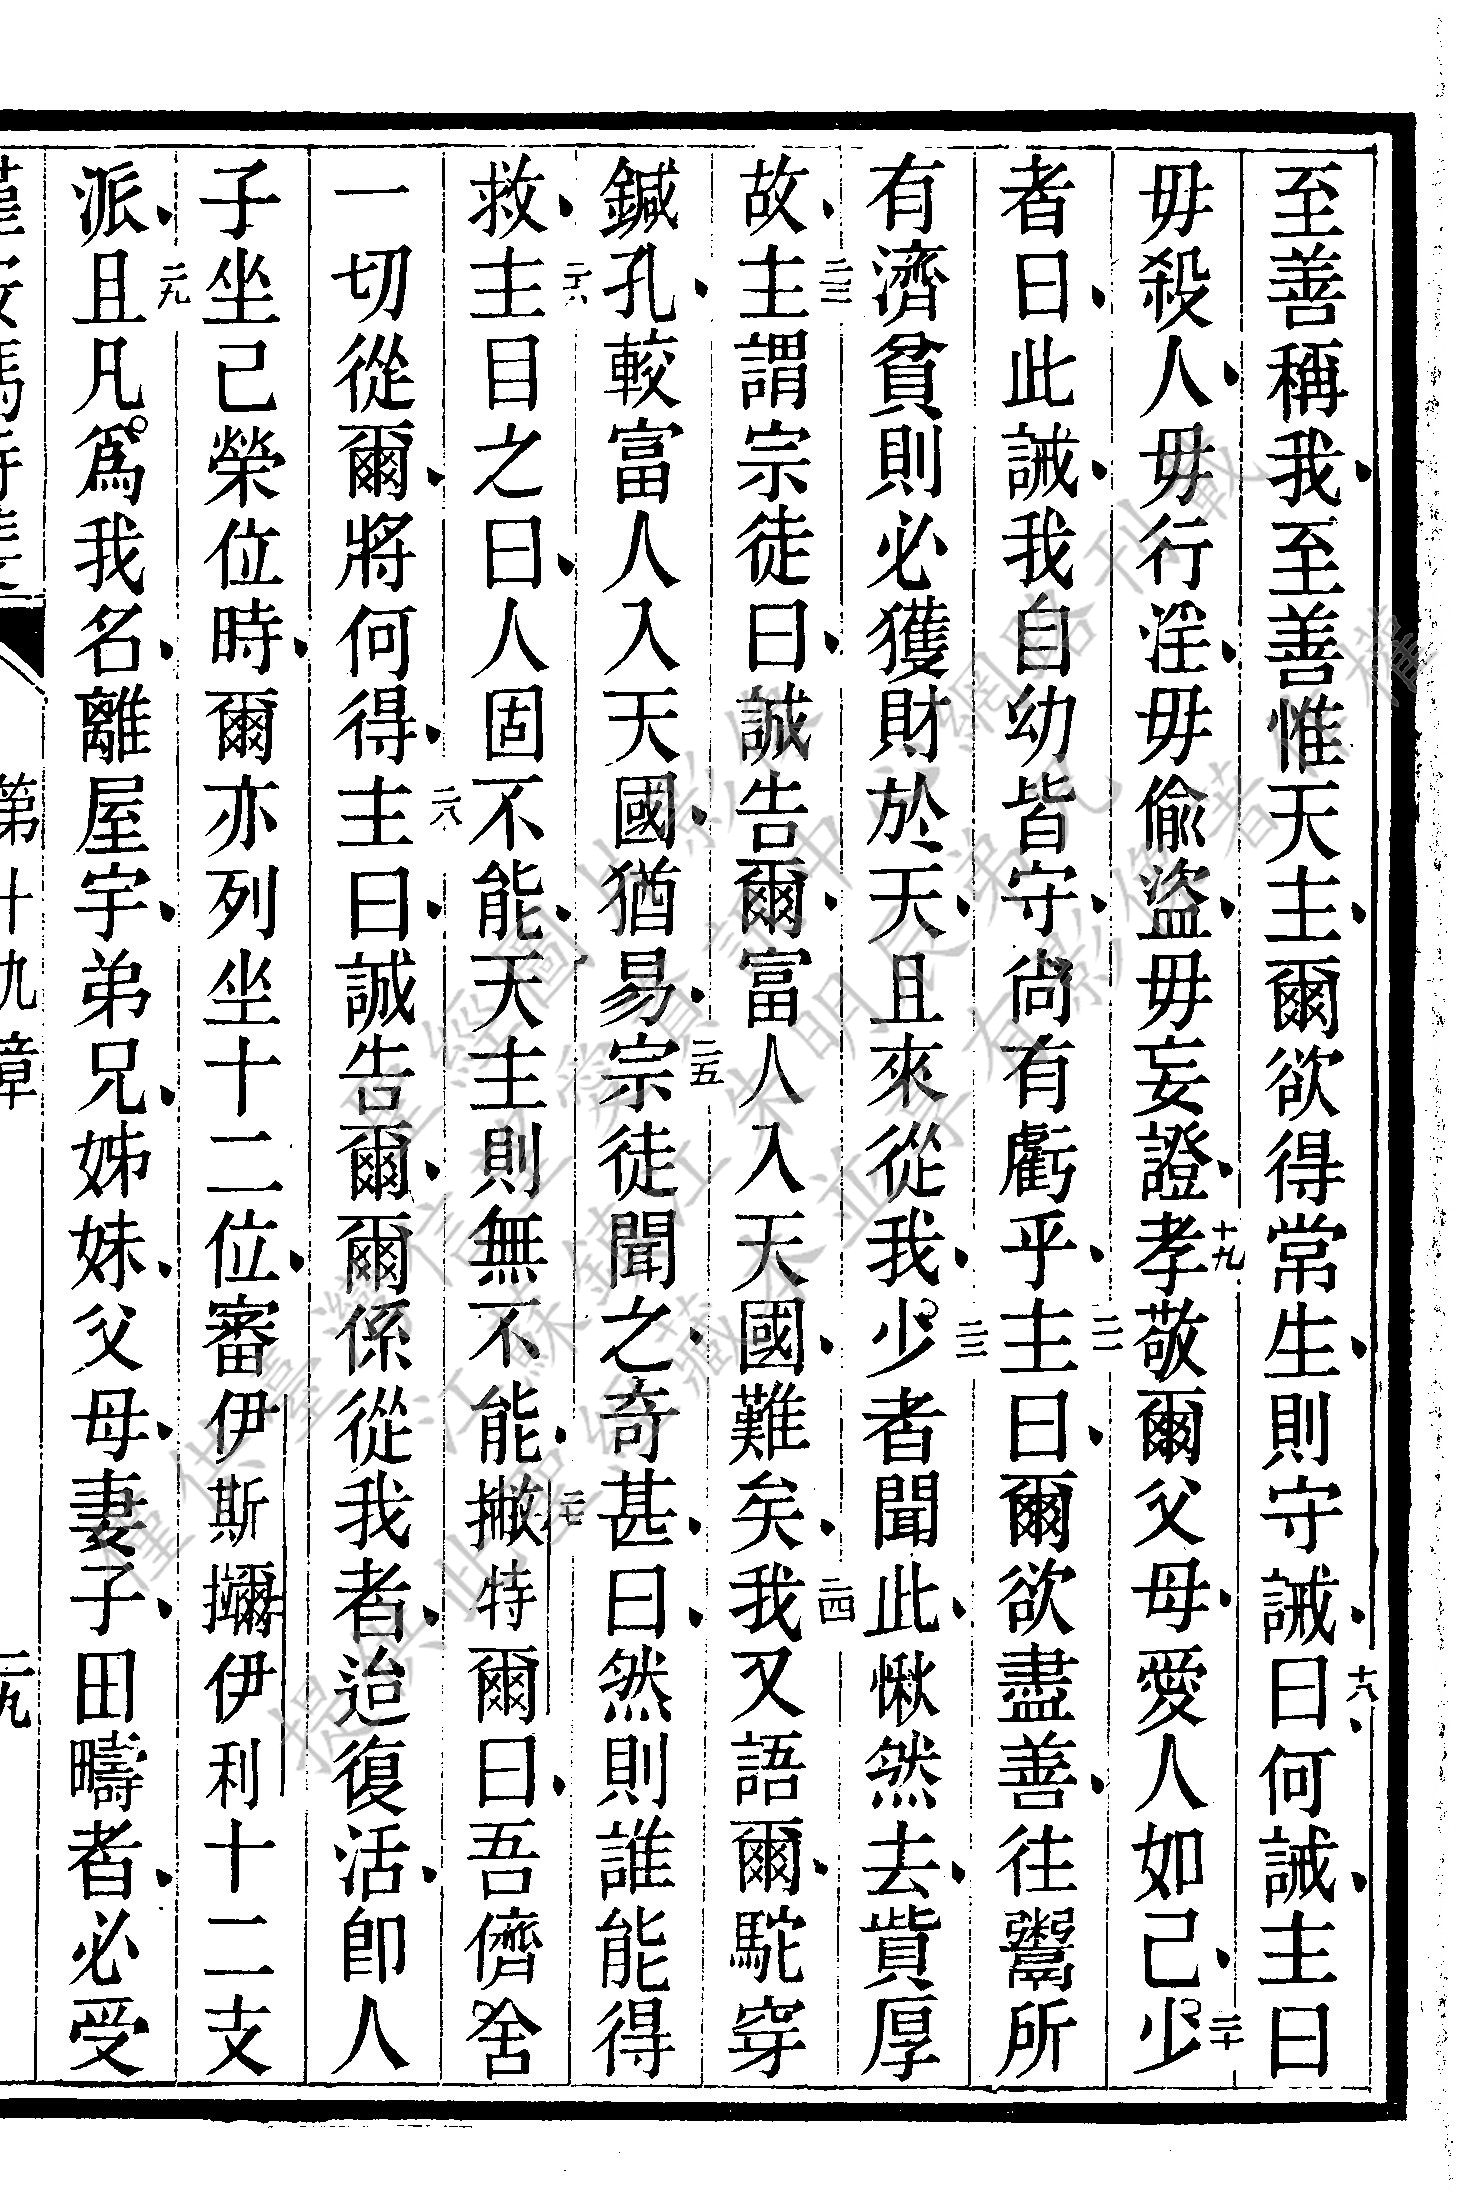 至善稱我、至善惟天主、爾欲得常生、則守誡、十八曰、何誡、主曰
毋殺人、毋行淫、毋偷盜、毋妄證、十九孝敬爾父母、愛人如己、二十少
者曰、此誡、我自幼皆守、尙有虧乎、二一主曰、爾欲盡善、往鬻所
有濟貧則必獲財於天、且來從我、二二少者聞此、愀然去、貲厚
故、二三主謂宗徒曰、誠告爾、富人入天國、難矣、二四我又語爾、駝穿
鍼孔、較富人入天國、猶易、二五宗徒聞之、奇甚、曰、然則誰能得
救、二六主目之曰、人固不能、天主則無不能、二七撇特爾曰、吾儕舍
一切從爾、將何得、二八主曰、誠告爾、爾係從我者、迨復活、卽人
子坐己榮位時、爾亦列坐十二位、審伊斯攡伊利十二支
派、二九且凡爲我名、離屋宇、弟兄、姊妹、父母、妻子、田疇者、必受
第十九章
二九